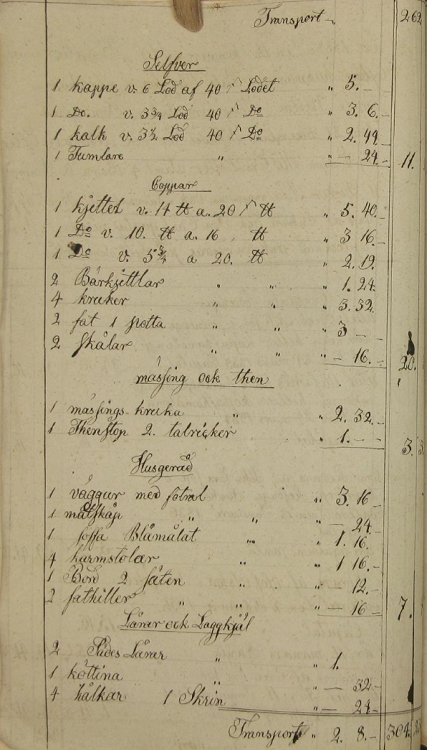 Transport 262
Silfver
1 kappe v. 6 Lod af 40 Lodet " 5. —
1 Do. v. 3 3/4 Lod 40 Do " 3. 6. —
1 kalk v. 3 1/2 Lod 40 Do " 2. 44 —
1 Tumlare " — 24. — 11.
Coppar
1 kjettel v. 14 tt a. 20 tt " 5. 40. —
1 Do v. 10. tt a. 16 tt " 3 16. —
1 Do v. 5 3/4 a 20. tt " 2. 19. —
2 Bärkjettlar " " 1. 24.
4 krucker " " 3. 32
2 fat 1 potta " " 3 — —
2 Skålar " " — 16. — 20.
mässing ock then
1 mässings. krucka " " 2. 32. —
1 Then Stop 2. talricker " 1. — — 3.
Husgeråd
1 väggur med foral " 3. 16
1 matskåp " " — 24. —
1 soffa Blåmålat " " 1. 16.
4 karmstolar " " 1 16. —
1 Bord 2 säten " " 12. —
2 fathiller " " — 16 — 7.
Lårar ock Laggkjäl
2 Sädes Lårar " " 1.
1 köttina " " — 32 —
4 hålkar 1 Skrin — 24 —
Transport " 2. 8. — 304.